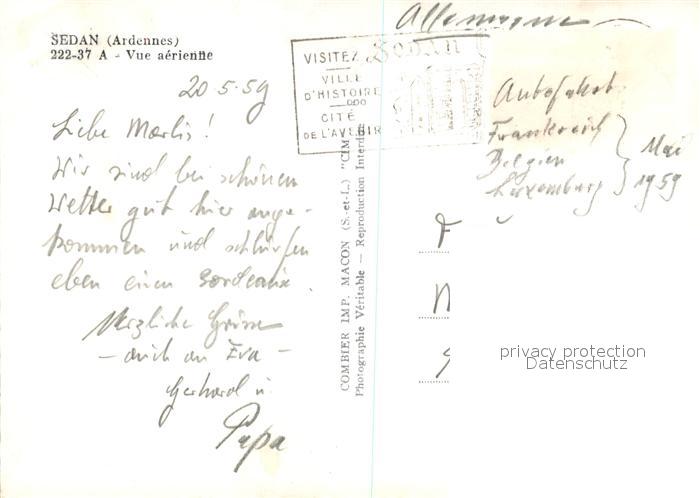 SEDAN (Ardennes)
222-37 A - Vue aérienne
20.5.59
Liebe Marlis!
Wir sind bei schönen
Wetter gut hier ange-
kommen und schlürfen
eben einen Bordeaux.
Herzliche Grüsse
- auch an Eva -
Gerhard u.
Papa
COMBIER IMP. MACON (S.-et-L.) "CIM"
Photographie Véritable — Reproduction Interdite
VISITEZ Sedan
VILLE
D'HISTOIRE
CITÉ
DE L'AVENIR
Allemagne
Autofahrt
Frankreich
Belgien
Luxemburg
Mai
1959
privacy protection
Datenschutz